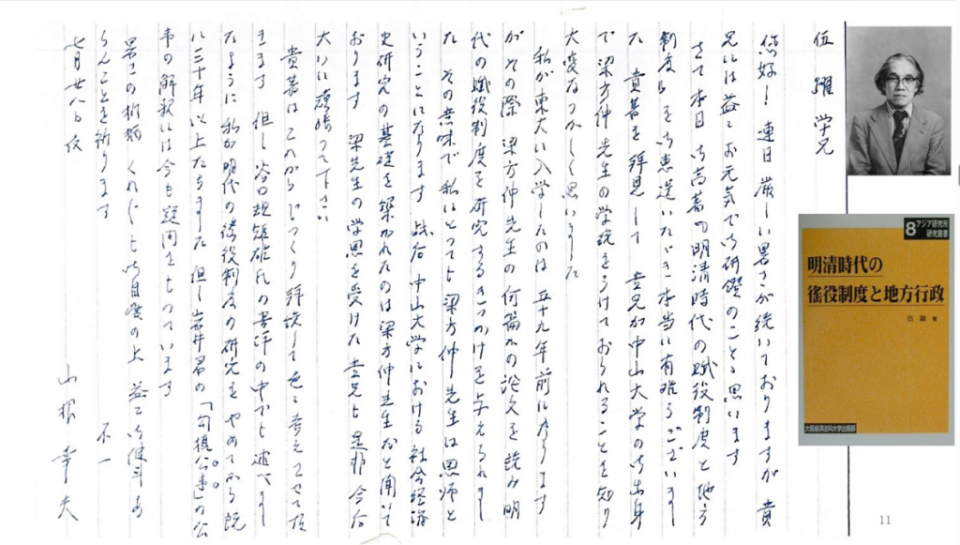 伍 躍 学兄
您好! 連日 厳しい暑さが続いておりますが 貴
兄には益々お元気で御研鑽のことゝ思います
さて本日 御高著『明清時代の賦役制度と地方
制度』を御恵送いただき本当に有難うございまし
た 貴著を拝見して 貴兄が中山大学の御出身
で 梁方仲先生の学統をうけておられることを知り
大変なつかしく思いました
私が東大に入学したのは 五十九年前になります
が その際 梁方仲先生の何篇かの論文を読み 明
代の賦役制度を研究するきっかけを与えられまし
た その意味で 私にとっても梁方仲先生は恩師と
いうことになります 戦后 中山大学における社会経済
史研究の基礎を築かれたのは梁方仲先生だと聞いて
おります 梁先生の学恩を受けた貴兄も 是非 今后
大いに頑張って下さい
貴著はこれからじっくり拝読して色々考えさせて頂
きます 但し 谷口規矩雄氏の書評の中でも述べまし
たように 私が明代の徭役制度の研究をやめてから既
に三十年以上たちました 但し岩井君の「勾摂公事」の公
事の解釈には今も疑問をもっています
暑さの折柄 くれぐれも御自愛の上 益々御健斗あ
らんことを祈ります 不一
七月廿八日夜
山根幸夫
8 アジア研究所
研究叢書
明清時代の
徭役制度と地方行政
伍 躍 著
大阪経済法科大学出版部
11